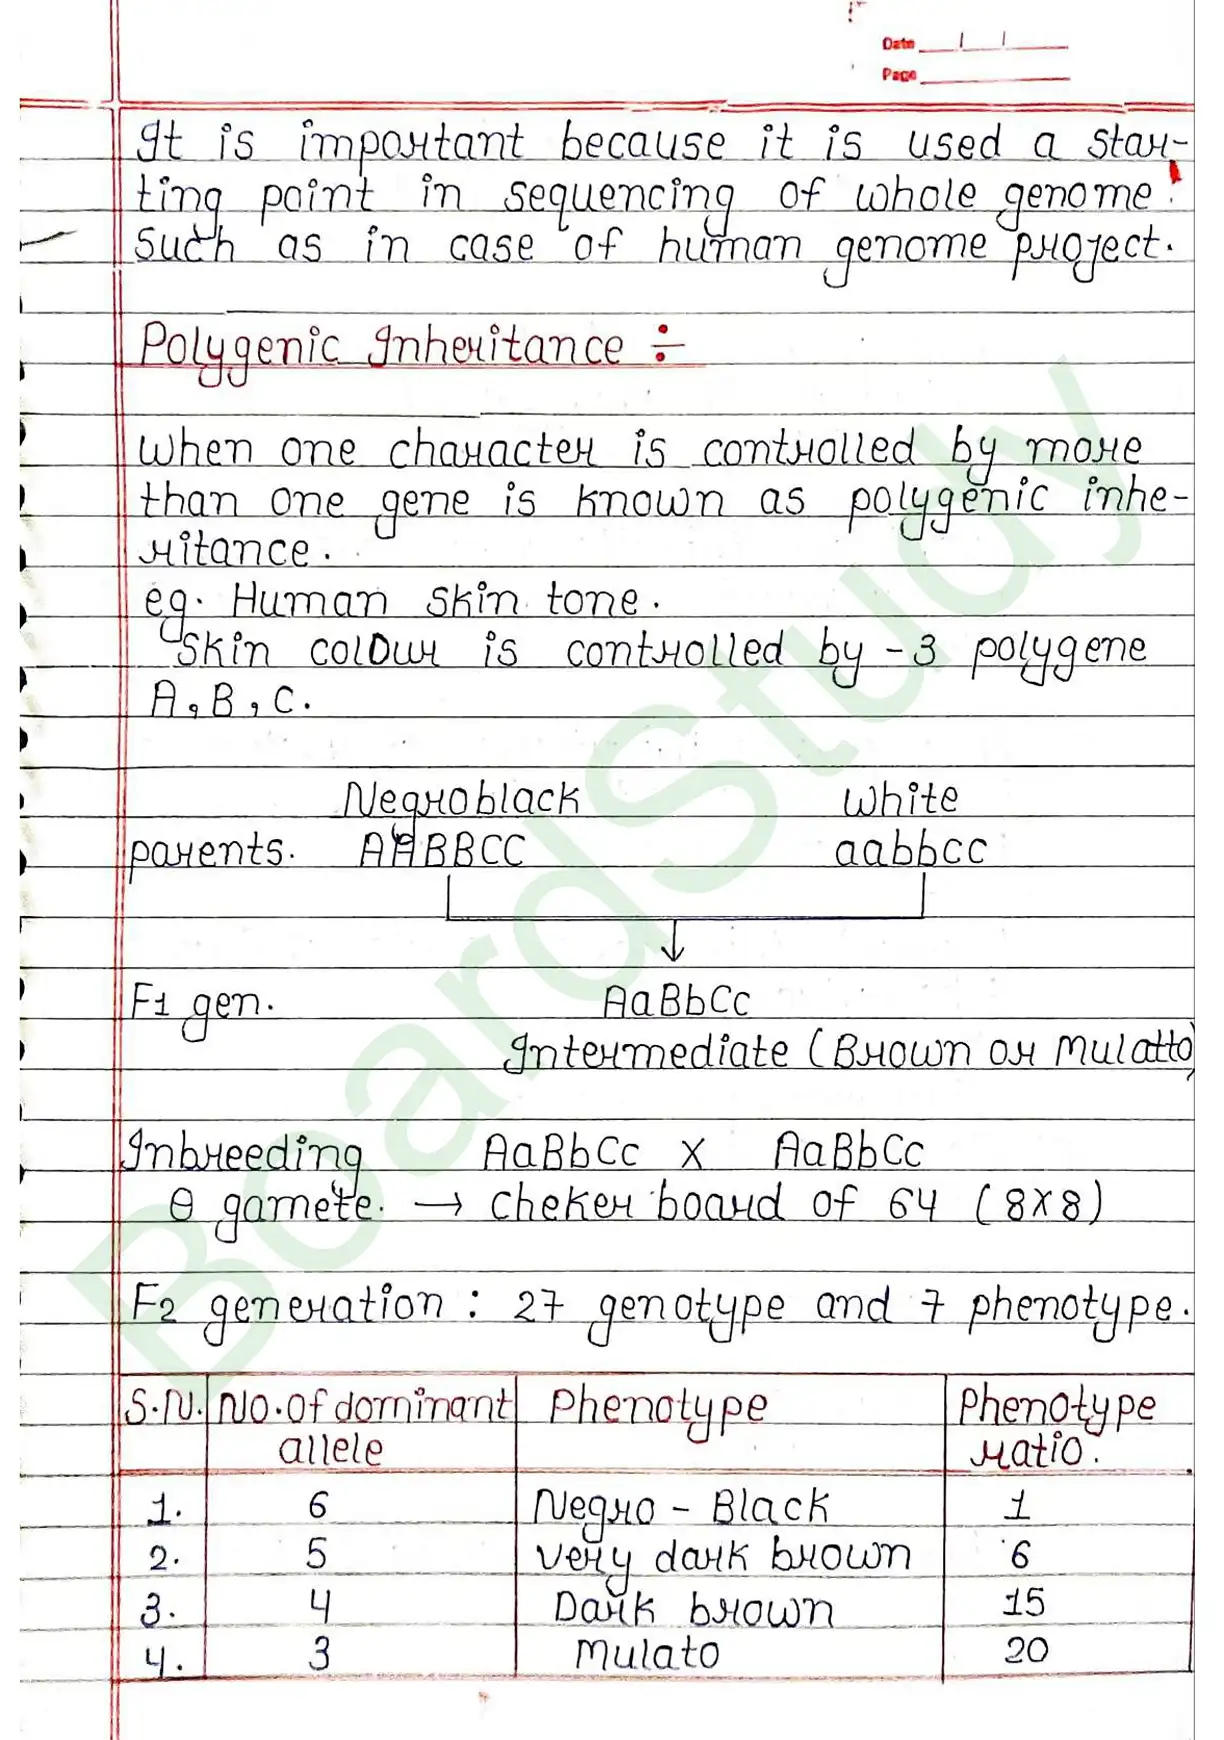 Date
Page
It is important because it is used a star-
ting point in sequencing of whole genome.
Such as in case of human genome project.
Polygenic Inheritance ÷
When one character is controlled by more
than one gene is known as polygenic inhe-
ritance.
eg. Human skin tone.
Skin colour is controlled by - 3 polygene
A, B, C.
Negroblack White
parents. AABBCC aabbcc
F1 gen. AaBbCc
Intermediate (Brown or Mulatto)
Inbreeding AaBbCc x AaBbCc
8 gamete. → Cheker board of 64 (8x8)
F2 generation : 27 genotype and 7 phenotype.
S.N. No. of dominant allele Phenotype Phenotype ratio.
1. 6 Negro - Black 1
2. 5 very dark brown 6
3. 4 Dark brown 15
4. 3 Mulato 20
BoardStudy